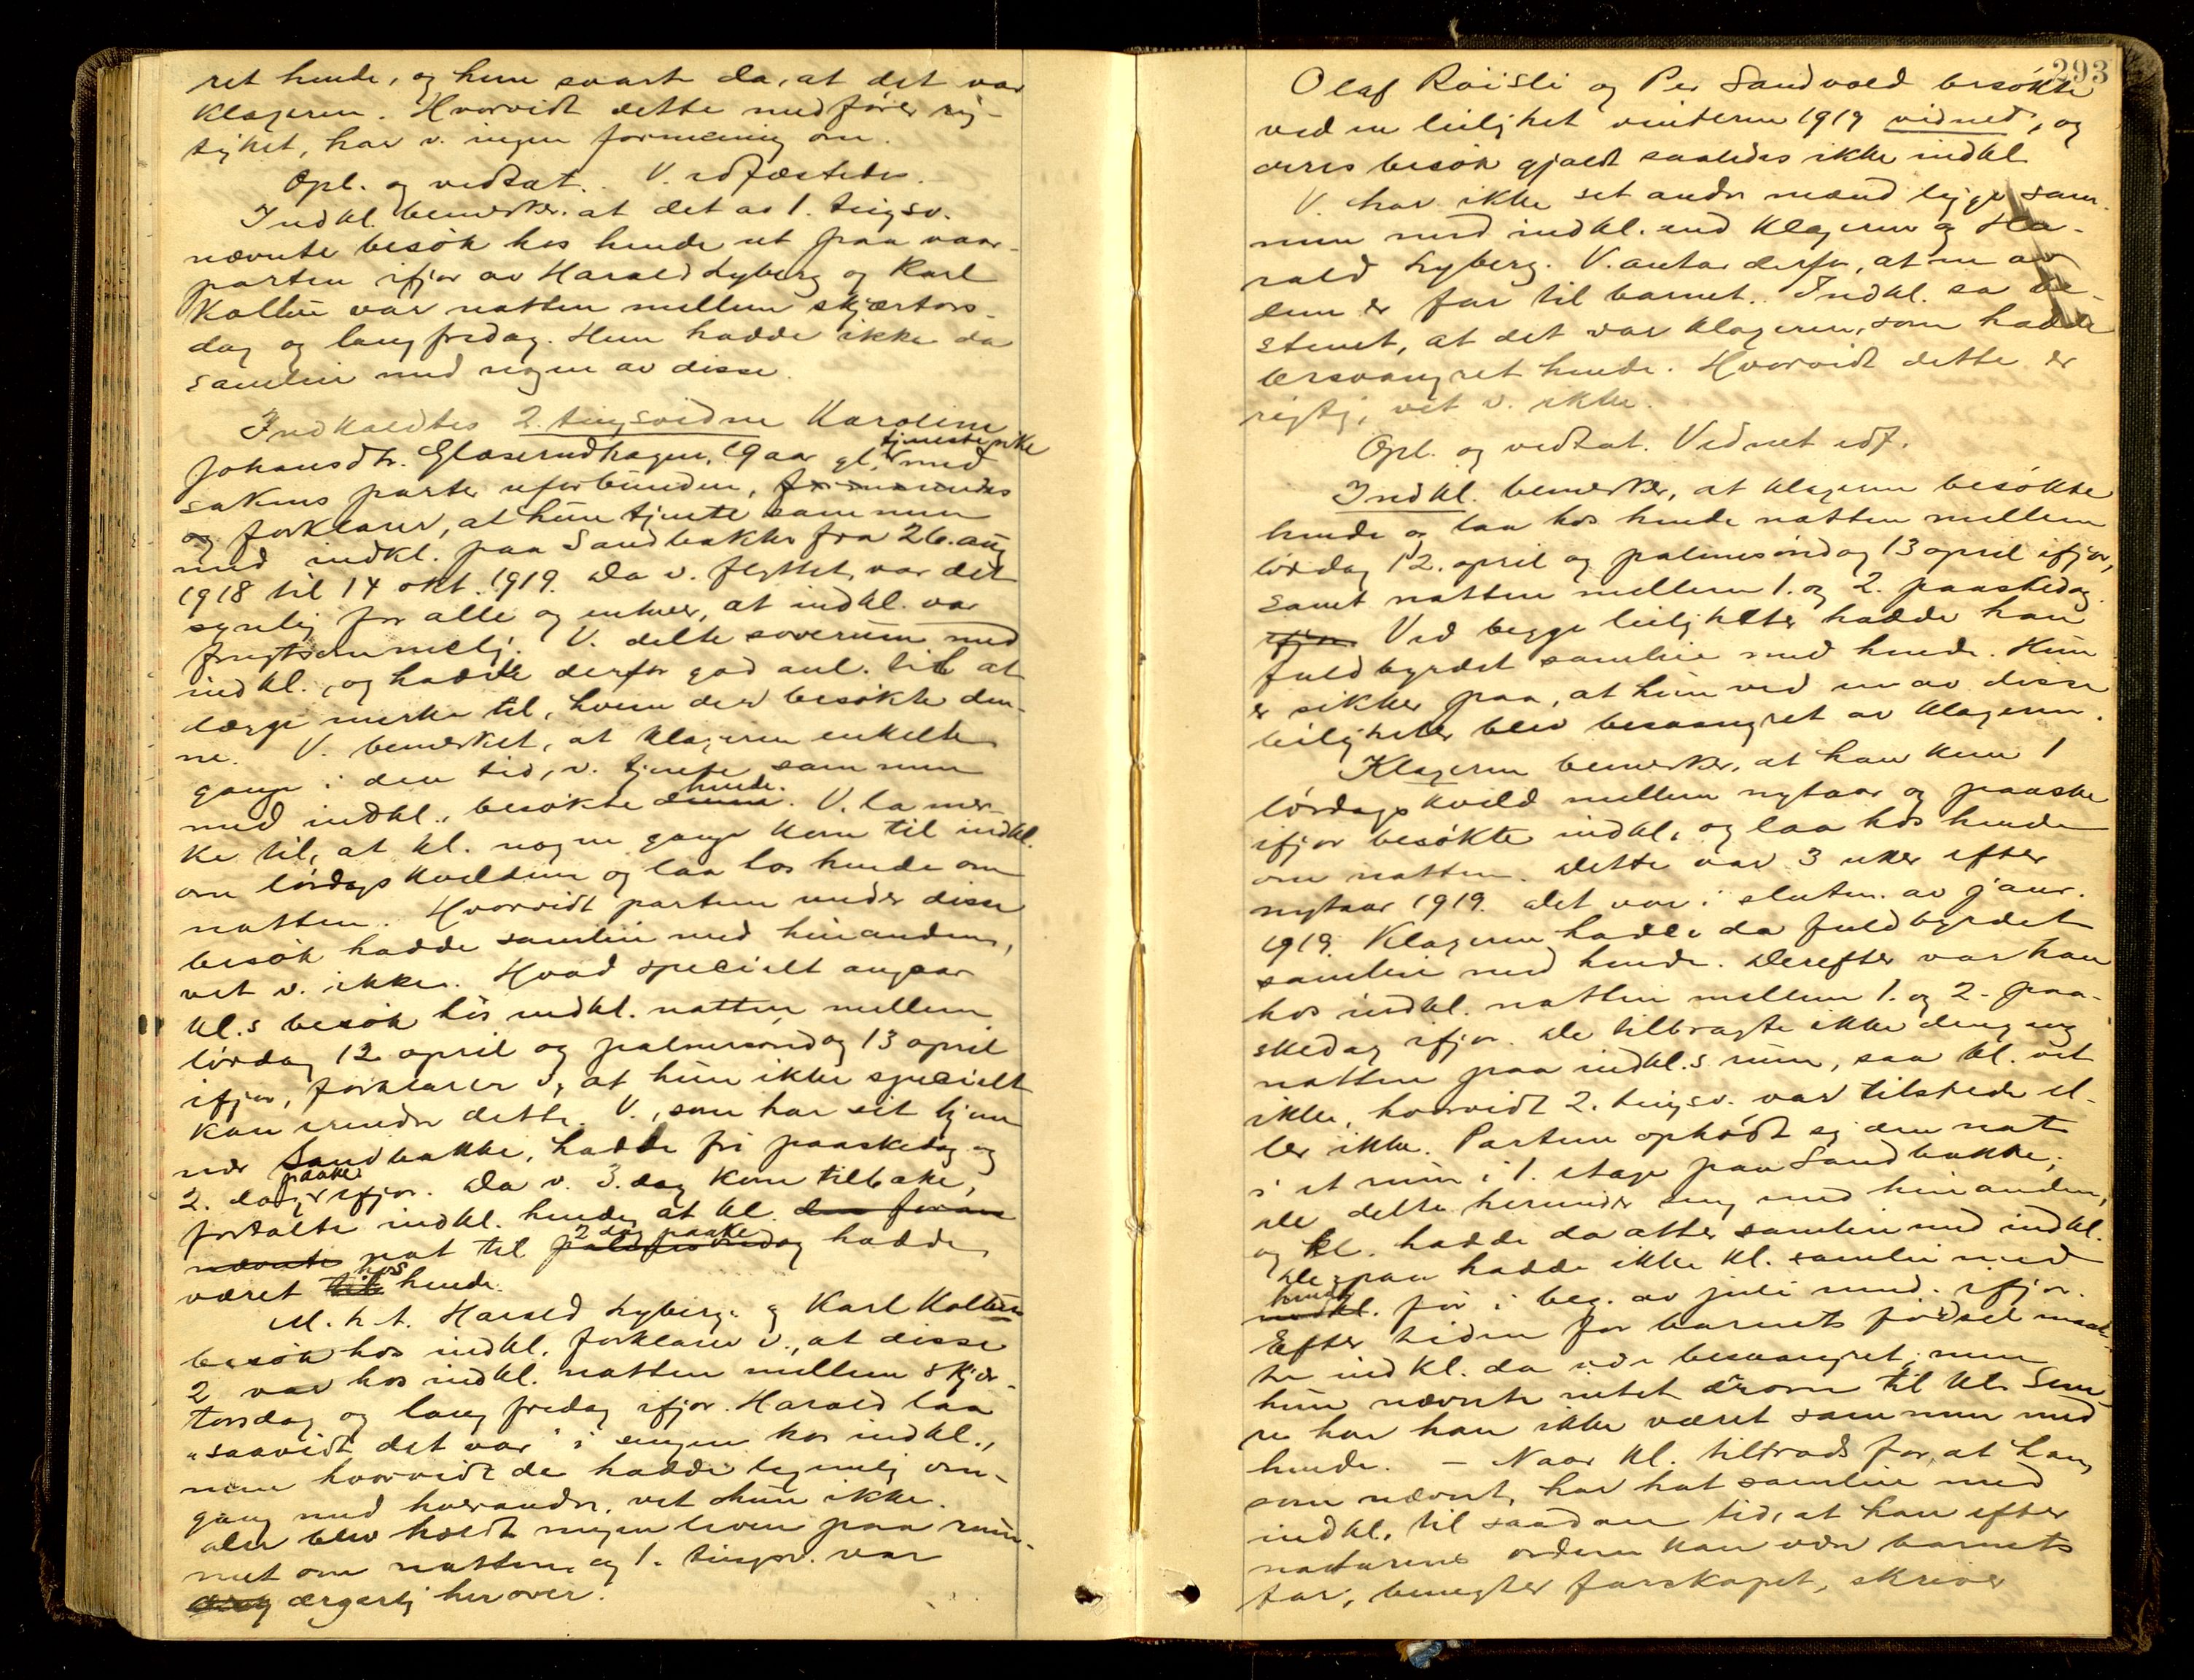 ret hende, og hun svart da, at det var
klageren. Hvorvidt dette medfører rig-
tighet, har v. ingen formening om.
Opl. og vedtat. V. edfæstedes.
Indkl. bemerker, at det av 1. tingsv.
nævnte besøk hos hende ut paa vaar-
parten ifjor av Harald Lyberg og Karl
Kolltin var natten mellem skjærtors-
dag og langfredag. Hun hadde ikke da
samleie med nogen av disse.
Indkaldtes 2. tingsvidne Karoline
Johansdtr. Glaserudhagen, 19 aar gl., tjenestepike med
sakens parter uforbunden,
og forklarer, at hun tjente sammen
med indkl. paa Sandbakken fra 26. aug
1918 til 14 okt. 1919. Da v. flyttet, var det
synlig for alle og enhver, at indkl. var
frugtsommelig. V. delte soverum med
indkl., og hadde derfor god anl. til at
lægge merke til, hvem der besøkte den-
ne. V. bemerket, at klageren enkelte
gange i den tid, v. tjente sammen
med indkl., besøkte denne hende. V. la mer-
ke til, at kl. nogen gange kom til indkl.
om lørdagskvelden og laa hos hende om
natten. Hvorvidt partene under disse
besøk hadde samleie med hinanden,
vet v. ikke. Hvad specielt angaar
kl.s besøk hos indkl. natten mellem
lørdag 12 april og palmesøndag 13 april
ifjor, forklarer v., at hun ikke specielt
kan erindre dette. V., som har sit hjem
nær Sandbakke, hadde fri paaskedag og
2. dag paaske ifjor. Da v. 3. dag kom tilbake,
fortalte indkl. hende, at kl. den foran
nævnte nat til palmesøndag 2 dag paaske hadde
været til hos hende.
M. h. t. Harald Lyberg. og Karl Kolltins
besøk hos indkl. forklarer v., at disse
2 var hos indkl. natten mellem skjær-
torsdag og langfredag ifjor. Harald laa
"saavidt det var" i sengen hos indkl.,
men hvorvidt de hadde legemlig om-
gang med hverandre, vet hun ikke.
Der blev holdt nogen leven paa rum-
met om natten, og 1. tingsv. var
ærgerlig herover.
293
Olaf Røisli og Per Sandvold besøkte
ved en leilighet vinteren 1919 vidnet, og
deres besøk gjaldt saaledes ikke indkl.
V. har ikke set andre mænd ligge sam-
men med indkl. end klageren og Ha-
rald Lyberg. V. antar derfor, at en av
dem er far til barnet. Indkl. sa be-
stemt, at det var klageren, som hadde
besvangret hende. Hvorvidt dette er
rigtig, vet v. ikke.
Opl. og vedtat. Vidnet edf.
Indkl. bemerker, at klageren besøkte
hende og laa hos hende natten mellem
lørdag 12. april og palmesøndag 13 april ifjor,
samt natten mellem 1. og 2. paaskedag
ifjor. Ved begge leiligheter hadde han
fuldbyrdet samleie med hende. Hun
er sikker paa, at hun ved en av disse
leiligheter blev besvangret av klageren.
Klageren bemerker, at han kun 1
lørdagskveld mellem nytaar og paaske
ifjor besøkte indkl. og laa hos hende
om natten. Dette var 3 uker efter
nytaar 1919. Det var i sluten. av janr.
1919. Klageren hadde da fuldbyrdet
samleie med hende. Derefter var han
hos indkl. natten mellem 1. og 2. paa-
skedag ifjor. De tilbragte ikke dengang
natten paa indkl.s rum, saa kl. vet
ikke, hvorvidt 2. tingsv. var tilstede el-
ler ikke. Partene opholdt sig den nat
i et rum i 1. etage paa Sandbakke;
de delte herunder seng med hinanden,
og kl. hadde da atter samleie med indkl.
Derpaa hadde ikke kl. samleie med
indkl. hende før i beg. av juli mnd. ifjor.
Efter tiden for barnets fødsel maat-
te indkl. da være besvangret, men
hun nævnte intet derom til kl. Sene-
re har han ikke været sammen med
hende. - Naar kl. tiltrods for, at han,
som nævnt, har hat samleie med
indkl. til saadan tid, at han efter
naturens orden kan være barnets
far, benegter farskapet, skriver